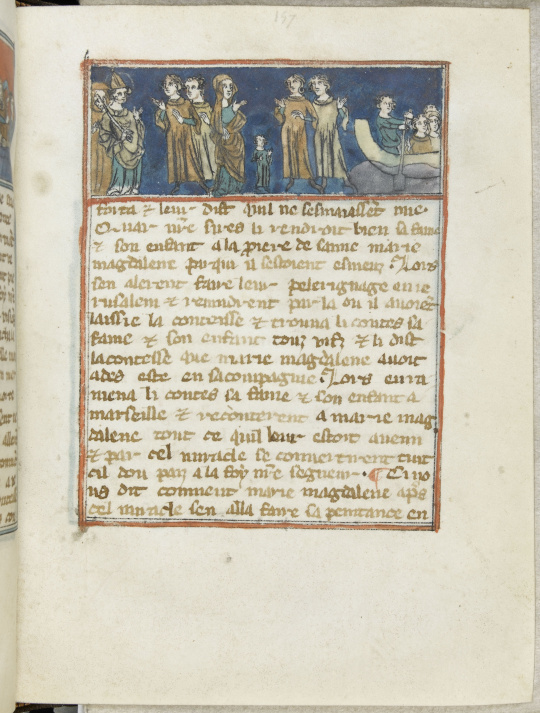 157
forta & leur dist quil ne sesmaiassẽt mie.
Quar nr̃e sires li rendroit bien sa fame
& son enfant a la p̃iere de sainte marie
magdalene par qui il sestoient esmeu. Lors
sen alerent faire leur pelerignage en ie
rusalem & reuindrent par la ou il auoiẽt
laissie la contesse & trouua li contes sa
fame & son enfant touz vis & li dist
la contesse que marie magdalene auoit
ades este en sa compagnie. Lors en ra
mena li contes sa fame & son enfant a
marseille & reconterent a marie mag
dalene tout ce quil leur estoit auenu
& par cel miracle se conuertirent tuit
cil dou pais a la foy nr̃e segneur. ¶ Ci no
us dit conment marie magdalene ap̃s
cel miracle sen alla faire sa penitance en